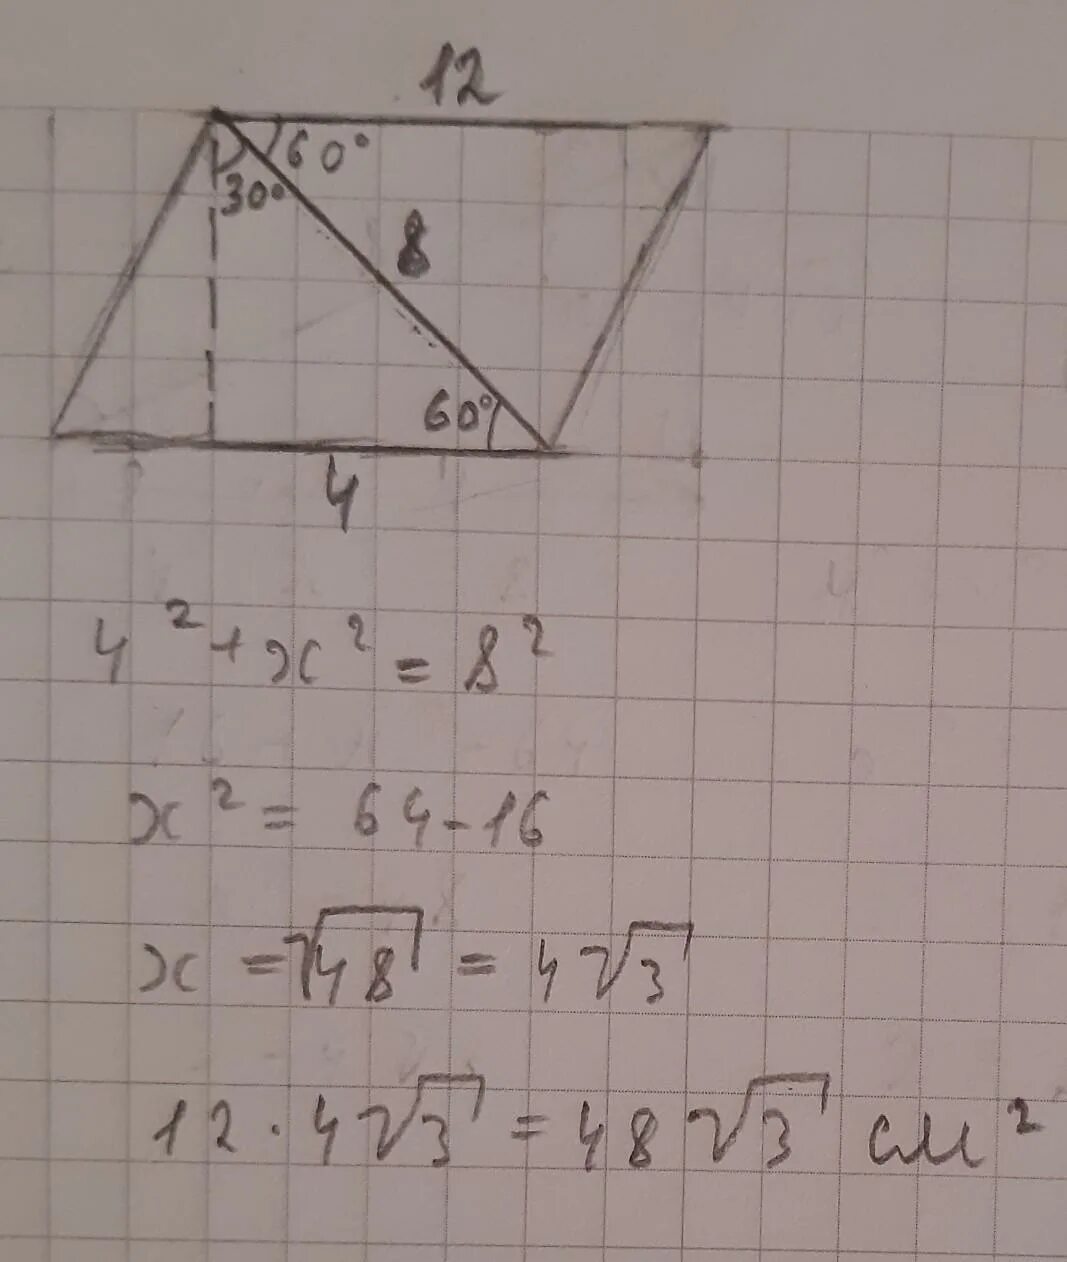 12
60°
30°
8
60°
4
4² + x² = 8²
x² = 64 - 16
x = √48 = 4√3
12 · 4√3 = 48√3 см²